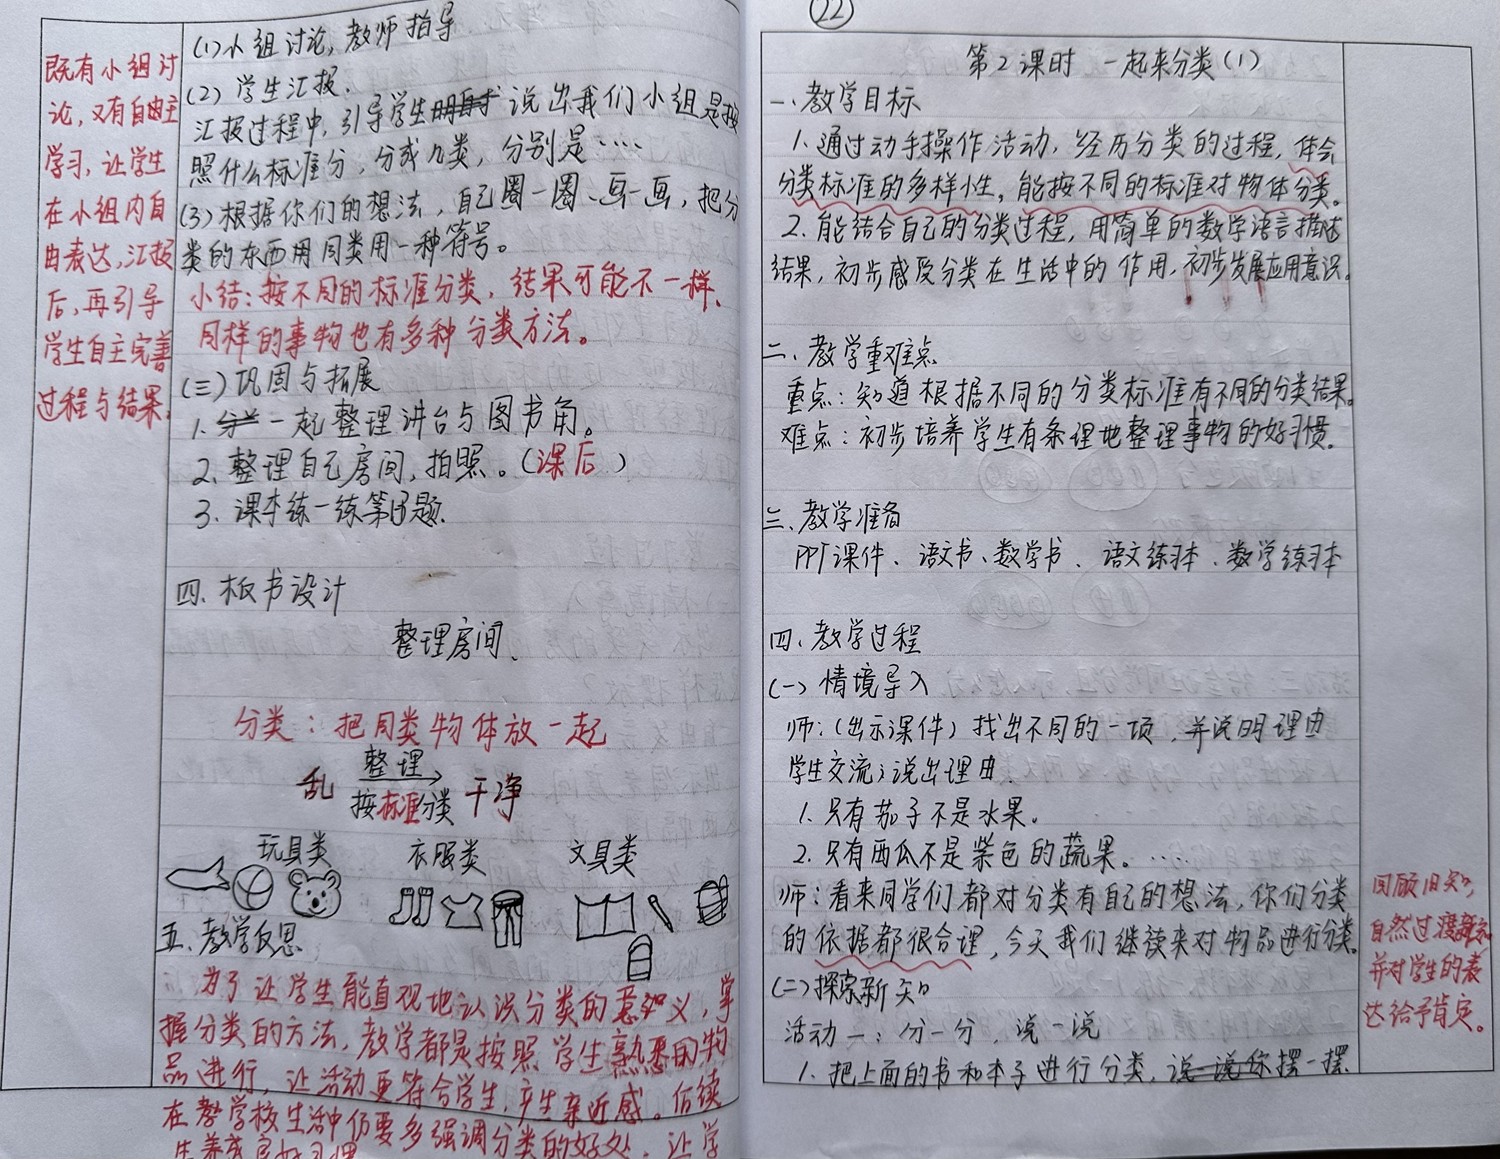 既有小组讨
论,又有自由主
学习,让学生
在小组内自
由表达,汇报
后,再引导
学生自主完善
过程与结果。
(1)小组讨论,教师指导
(2)学生汇报.
汇报过程中,引导学生说出我们小组是按
照什么标准分,分成几类,分别是……
(3)根据你们的想法,自己圈一圈、画一画,把分
类的东西用同类用一种符号。
小结:按不同的标准分类,结果可能不一样、
同样的事物也有多种分类方法。
(三)巩固与拓展
1.一起整理讲台与图书角。
2.整理自己房间,拍照。(课后)
3.课本练一练第题.
四.板书设计
整理房间
分类:把同类物体放一起
乱 整理 干净
按标准分类
玩具类 衣服类 文具类
五、教学反思
为了让学生能直观地认识分类的意义,掌
握分类的方法,教学都是按照学生熟悉的物
品进行,让活动更符合学生,产生亲近感。后续
在教学校生活中仍要多强调分类的好处,让学
22
第2课时 一起来分类(1)
一、教学目标
1.通过动手操作活动,经历分类的过程,体会
分类标准的多样性,能按不同的标准对物体分类。
2.能结合自己的分类过程,用简单的数学语言描述
结果,初步感受分类在生活中的作用,初步发展应用意识。
二、教学重难点
重点:知道根据不同的分类标准有不同的分类结果。
难点:初步培养学生有条理地整理事物的好习惯.
三、教学准备
PPT课件、语文书、数学书、语文练习本、数学练习本
四、教学过程
(一)情境导入
师:(出示课件)找出不同的一项,并说明理由
学生交流;说出理由.
1.只有茄子不是水果。
2.只有西瓜不是紫色的蔬果。……
师:看来同学们都对分类有自己的想法,你们分类
的依据都很合理,今天我们继续来对物品进行分类。
(二)探索新知
活动一:分一分,说一说
1.把上面的书和本子进行分类,说一说你摆一摆
回顾旧知,
自然过渡新知
并对学生的表
达给予肯定。